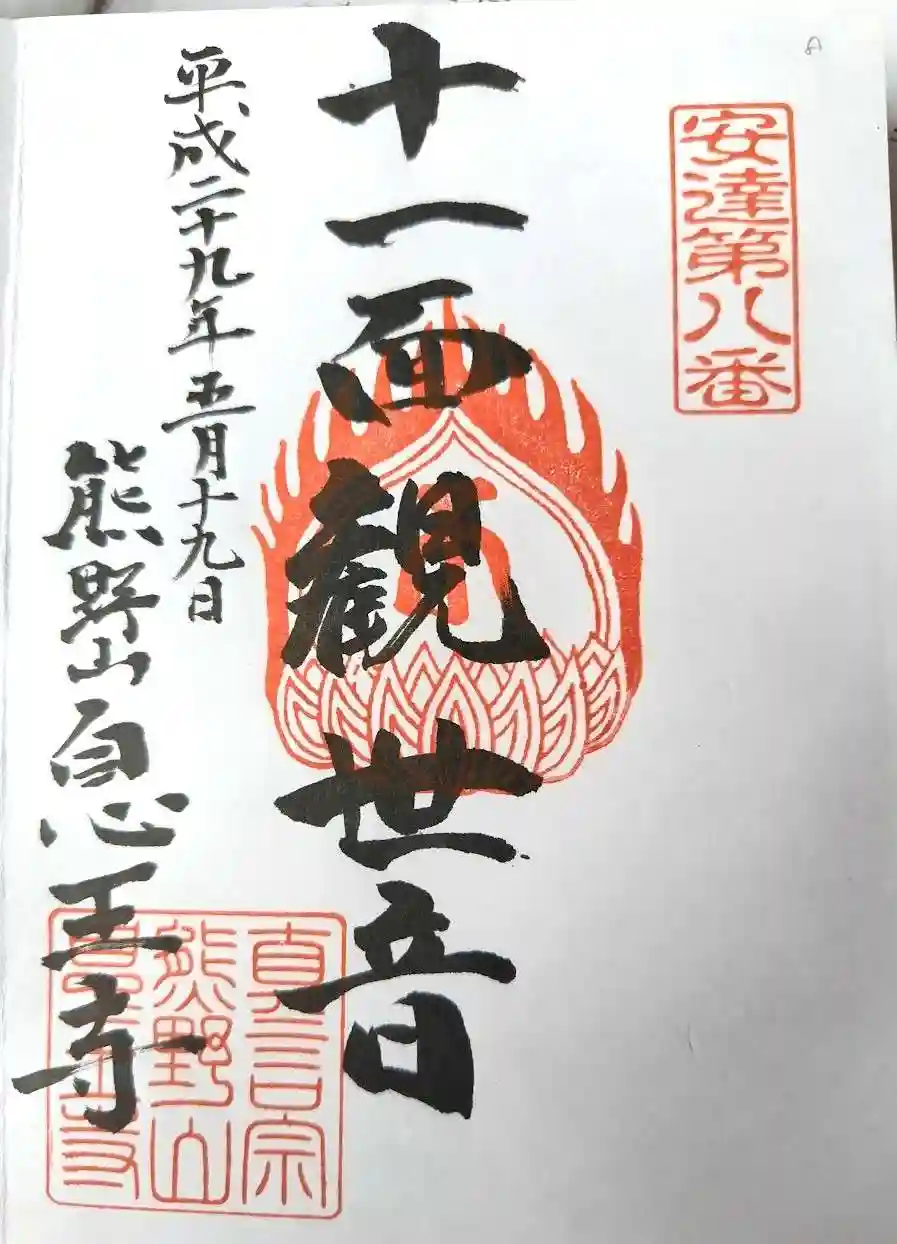 安達第八番
十一面観世音
平成二十九年五月十九日
熊野山恵王寺
真言宗
熊野山
恵王寺